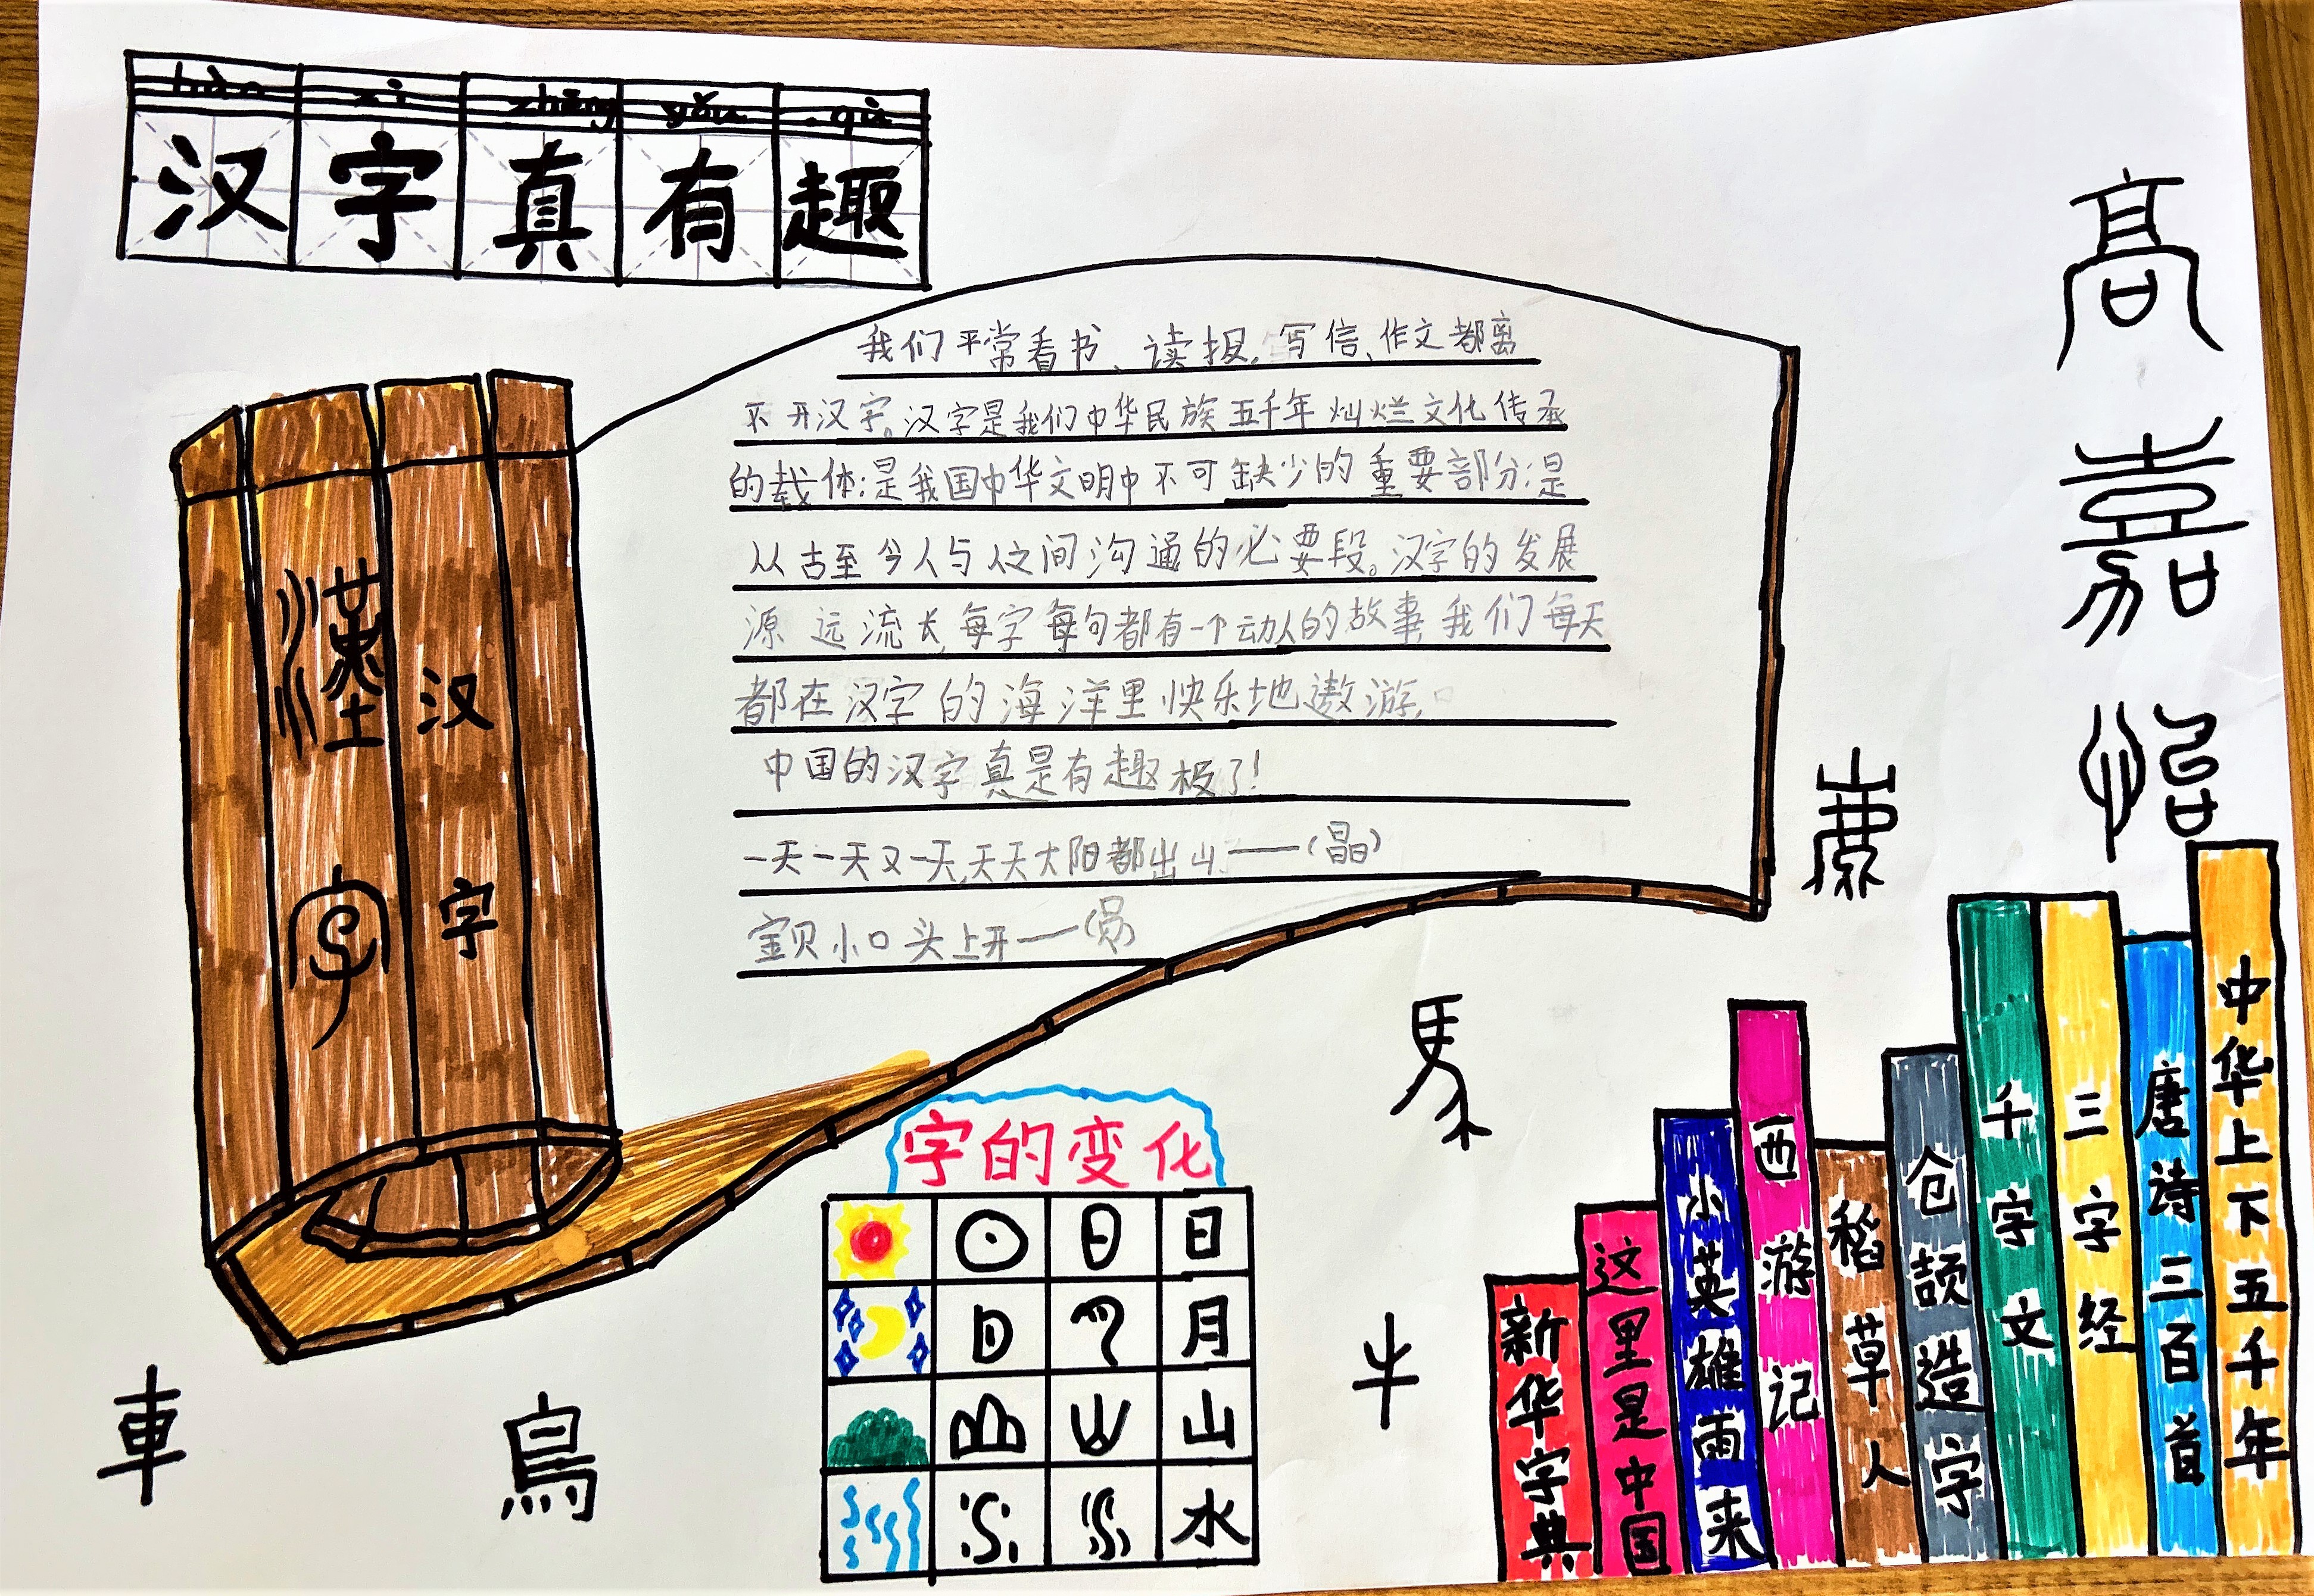 hàn zì zhēng yǒu qù
汉字真有趣
我们平常看书、读报,写信、作文都离
不开汉字。汉字是我们中华民族五千年灿烂文化传承
的载体;是我国中华文明中不可缺少的重要部分;是
从古至今人与人之间沟通的必要段。汉字的发展
源远流长,每字每句都有一个动人的故事,我们每天
都在汉字的海洋里快乐地遨游。
中国的汉字真是有趣极了!
一天一天又一天,天天太阳都出山——(晶)
宝贝小口头上开——(员)
漢字
汉字
高嘉怡
鹿
馬
牛
車
鳥
字的变化
日
月
山
水
新华字典
这里是中国
小英雄雨来
西游记
稻草人
仓颉造字
千字文
三字经
唐诗三百首
中华上下五千年